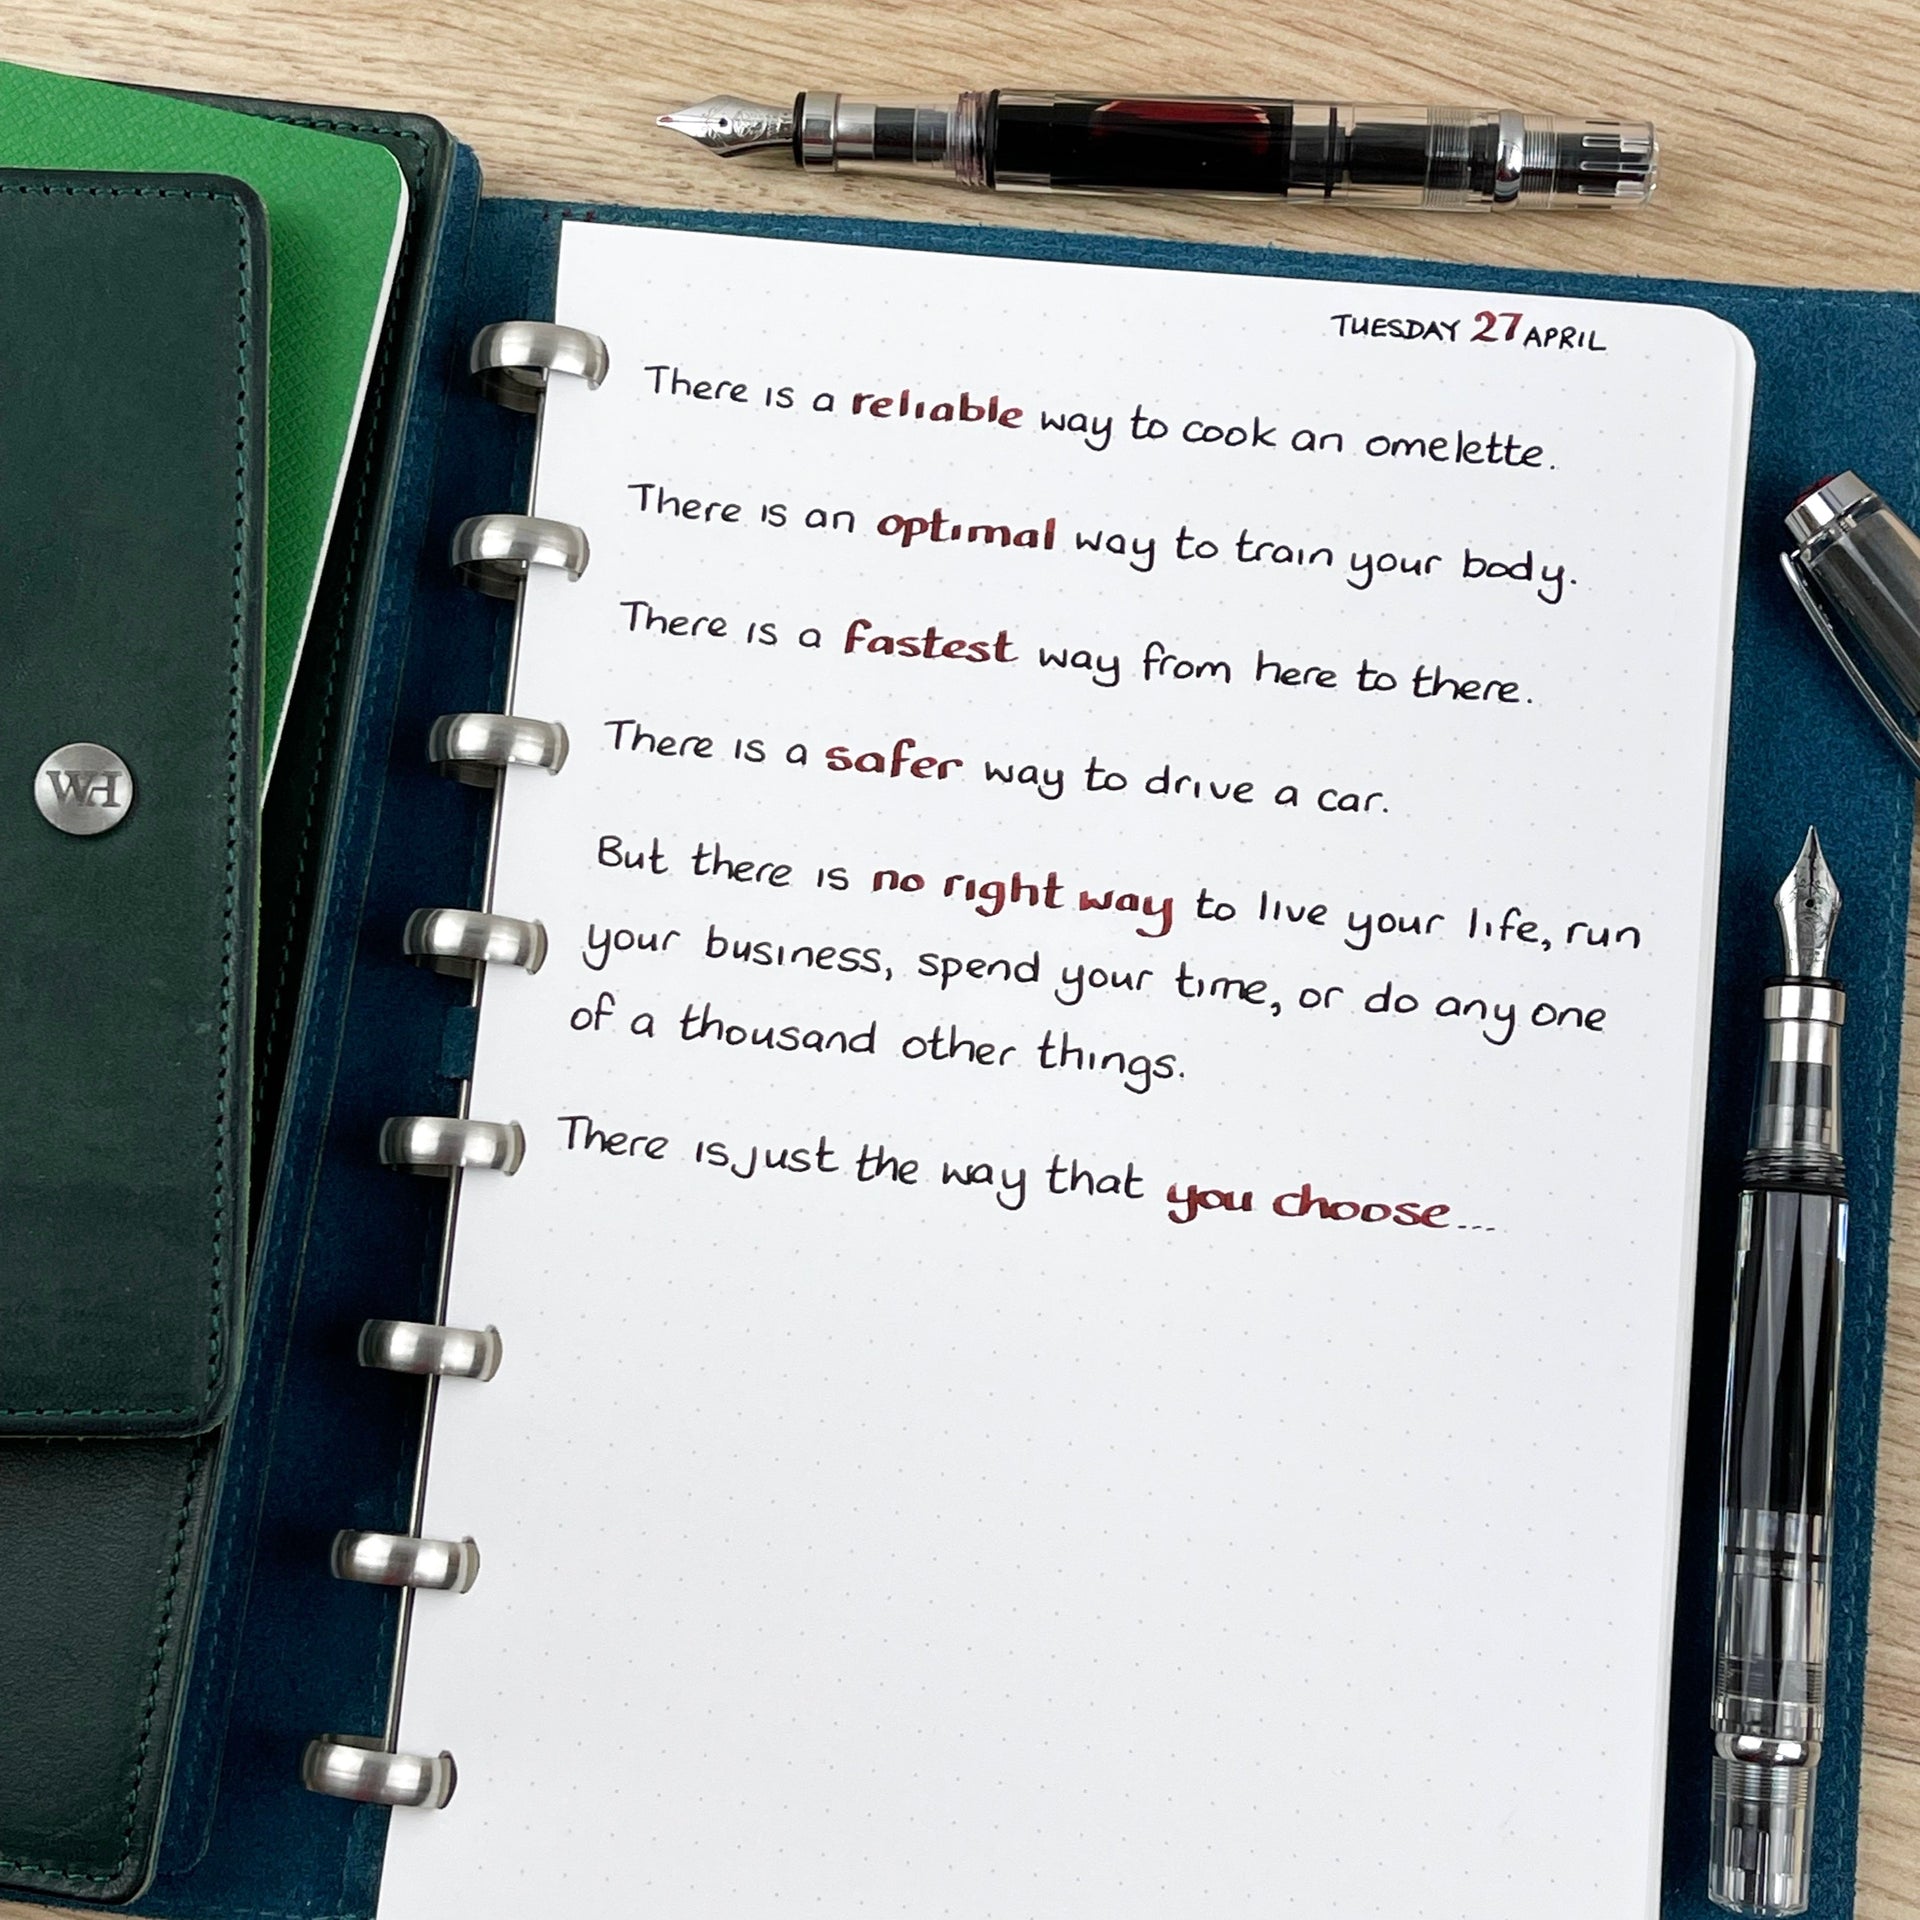 WH
TUESDAY 27 APRIL
There is a reliable way to cook an omelette.
There is an optimal way to train your body.
There is a fastest way from here to there.
There is a safer way to drive a car.
But there is no right way to live your life, run
your business, spend your time, or do any one
of a thousand other things.
There is just the way that you choose...